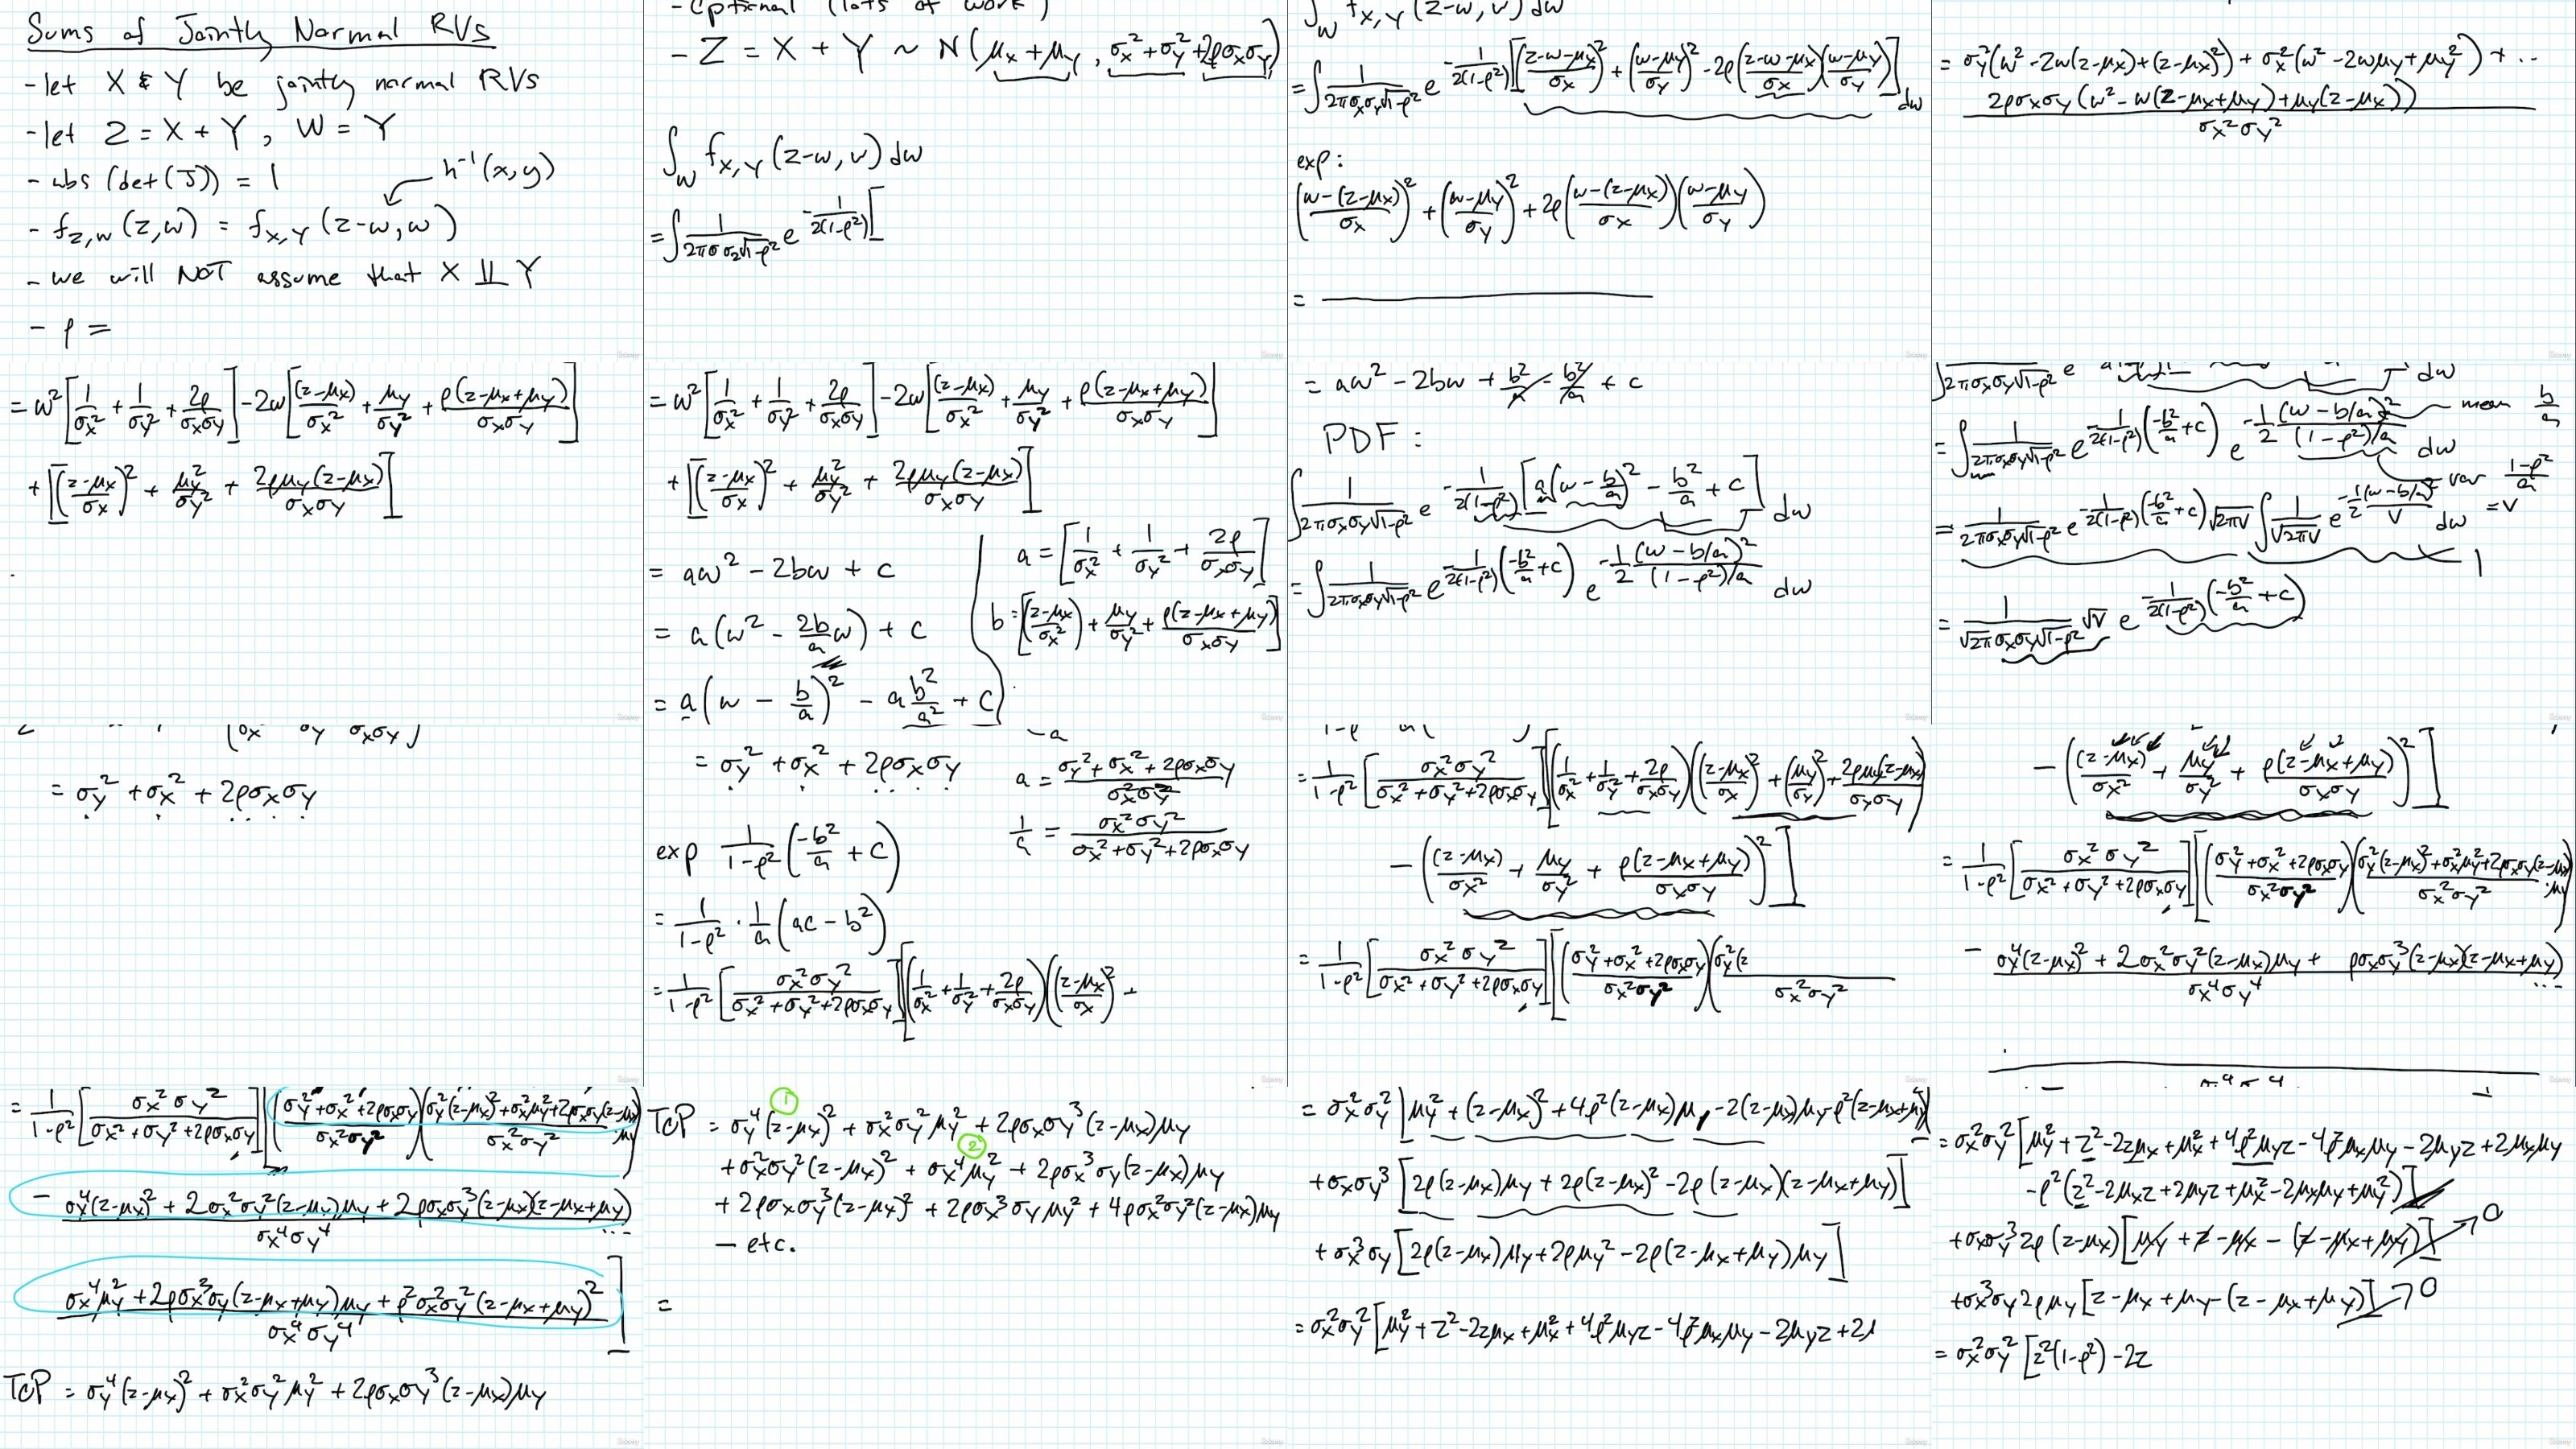 Sums of Jointly Normal RVs
- let X & Y be jointly normal RVs
- let Z = X + Y , W = Y
- abs (det(J)) = 1
h⁻¹(x,y)
- f_{z,w}(z,w) = f_{x,y}(z-w,w)
- we will NOT assume that X ⫫ Y
- ρ =
- Optional (lots of work)
- Z = X + Y ~ N(μx+μy , σx²+σy²+2ρσxσy)
∫_w f_{x,y}(z-w,w)dw
= ∫ 1/(2πσσ₂√(1-ρ²)) e^{-1/(2(1-ρ²))[
∫_w f_{x,y}(z-w,w)dw
= ∫ 1/(2πσxσy√(1-ρ²)) e^{-1/(2(1-ρ²))[((z-w-μx)/σx)² + ((w-μy)/σy)² - 2ρ((z-w-μx)/σx)((w-μy)/σy)]} dw
exp:
((w-(z-μx))/σx)² + ((w-μy)/σy)² + 2ρ((w-(z-μx))/σx)((w-μy)/σy)
=
= σy²(w²-2w(z-μx)+(z-μx)²) + σx²(w²-2wμy+μy²) + ..
2ρσxσy(w²-w(z-μx+μy)+μy(z-μx))
σx²σy²
= w²[1/σx² + 1/σy² + 2ρ/(σxσy)] - 2w[(z-μx)/σx² + μy/σy² + ρ(z-μx+μy)/(σxσy)]
+ [((z-μx)/σx)² + μy²/σy² + 2ρμy(z-μx)/(σxσy)]
= w²[1/σx² + 1/σy² + 2ρ/(σxσy)] - 2w[(z-μx)/σx² + μy/σy² + ρ(z-μx+μy)/(σxσy)]
+ [((z-μx)/σx)² + μy²/σy² + 2ρμy(z-μx)/(σxσy)]
= aw² - 2bw + c
a = [1/σx² + 1/σy² + 2ρ/(σxσy)]
= a(w² - (2b/a)w) + c
b = [(z-μx)/σx²) + μy/σy² + ρ(z-μx+μy)/(σxσy)]
= a(w - b/a)² - a b²/a² + c
= aw² - 2bw + b²/a - b²/a + c
PDF :
∫ 1/(2πσxσy√(1-ρ²)) e^{-1/(2(1-ρ²))[a(w - b/a)² - b²/a + c]} dw
= ∫ 1/(2πσxσy√(1-ρ²)) e^{-1/(2(1-ρ²))(-b²/a + c)} e^{-1/2 (w-b/a)²/((1-ρ²)/a)} dw
∫ 1/(2πσxσy√(1-ρ²)) e dw
= ∫ 1/(2πσxσy√(1-ρ²)) e^{-1/(2(1-ρ²))(-b²/a + c)} e^{-1/2 (w-b/a)²/((1-ρ²)/a)} dw
mean b/a
var (1-ρ²)/a = v
= 1/(2πσxσy√(1-ρ²)) e^{-1/(2(1-ρ²))(-b²/a + c)} √(2πv) ∫ 1/√(2πv) e^{-1/2 (w-b/a)²/v} dw
1
= 1/(√(2π)σxσy√(1-ρ²)) √v e^{-1/(2(1-ρ²))(-b²/a + c)}
= σy² + σx² + 2ρσxσy
= σy² + σx² + 2ρσxσy
a = (σy²+σx²+2ρσxσy)/(σx²σy²)
1/a = σx²σy²/(σx²+σy²+2ρσxσy)
exp 1/(1-ρ²) (-b²/a + c)
= 1/(1-ρ²) · 1/a (ac - b²)
= 1/(1-ρ²) [σx²σy²/(σx²+σy²+2ρσxσy)][(1/σx² + 1/σy² + 2ρ/(σxσy))(((z-μx)/σx)² +
= 1/(1-ρ²) [σx²σy²/(σx²+σy²+2ρσxσy)][(1/σx² + 1/σy² + 2ρ/(σxσy))(((z-μx)/σx)² + (μy/σy)² + 2ρμy(z-μx)/(σxσy))
- ((z-μx)/σx² + μy/σy² + ρ(z-μx+μy)/(σxσy))²]
= 1/(1-ρ²) [σx²σy²/(σx²+σy²+2ρσxσy)][((σy²+σx²+2ρσxσy)/(σx²σy²))(σy²(z / σx²σy²
- ((z-μx)/σx² + μy/σy² + ρ(z-μx+μy)/(σxσy))²]
= 1/(1-ρ²) [σx²σy²/(σx²+σy²+2ρσxσy)][((σy²+σx²+2ρσxσy)/(σx²σy²))((σy²(z-μx)²+σx²μy²+2ρσxσy(z-μx)μy)/(σx²σy²))
- (σy⁴(z-μx)² + 2σx²σy²(z-μx)μy + ρσxσy³(z-μx)(z-μx+μy) ...)/(σx⁴σy⁴)
= 1/(1-ρ²) [σx²σy²/(σx²+σy²+2ρσxσy)][((σy²+σx²+2ρσxσy)/(σx²σy²))((σy²(z-μx)²+σx²μy²+2ρσxσy(z-μx)μy)/(σx²σy²))
- (σy⁴(z-μx)² + 2σx²σy²(z-μx)μy + 2ρσxσy³(z-μx)(z-μx+μy) ...)/(σx⁴σy⁴)
(σx⁴μy² + 2ρσx³σy(z-μx+μy)μy + ρ²σx²σy²(z-μx+μy)²)/(σx⁴σy⁴)]
TOP = σy⁴(z-μx)² + σx²σy²μy² + 2ρσxσy³(z-μx)μy
①
TOP = σy⁴(z-μx)² + σx²σy²μy² + 2ρσxσy³(z-μx)μy
②
+ σx²σy²(z-μx)² + σx⁴μy² + 2ρσx³σy(z-μx)μy
+ 2ρσxσy³(z-μx)² + 2ρσx³σyμy² + 4ρσx²σy²(z-μx)μy
- etc.
=
= σx²σy²[μy² + (z-μx)² + 4ρ²(z-μx)μy - 2(z-μx)μy - ρ²(z-μx+μy)²]
+ σxσy³[2ρ(z-μx)μy + 2ρ(z-μx)² - 2ρ(z-μx)(z-μx+μy)]
+ σx³σy[2ρ(z-μx)μy + 2ρμy² - 2ρ(z-μx+μy)μy]
= σx²σy²[μy² + z² - 2zμx + μx² + 4ρ²μyz - 4ρ²μxμy - 2μyz + 2
= σx²σy²[μy² + z² - 2zμx + μx² + 4ρ²μyz - 4ρ²μxμy - 2μyz + 2μxμy
- ρ²(z² - 2μxz + 2μyz + μx² - 2μxμy + μy²)]
+ σxσy³2ρ(z-μx)[μy + z - μx - (z-μx+μy)] → 0
+ σx³σy2ρμy[z-μx+μy-(z-μx+μy)] → 0
= σx²σy²[z²(1-ρ²) - 2z